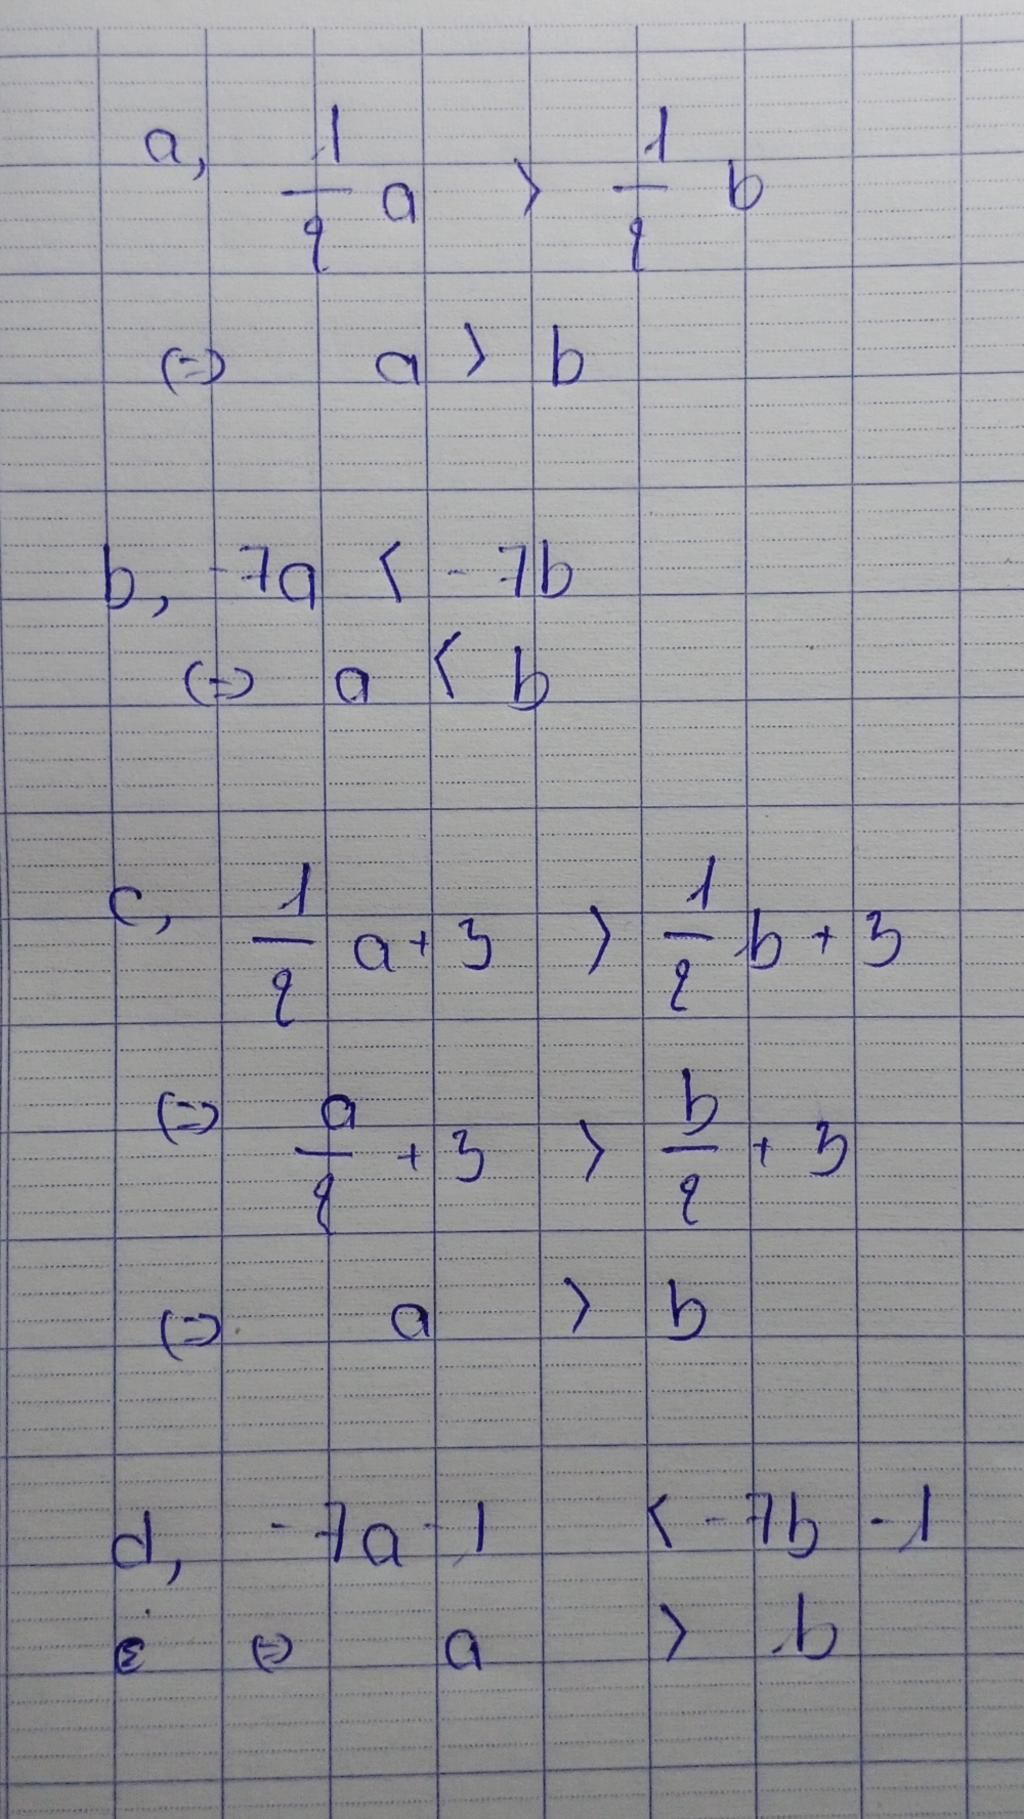 a, 1/2 a > 1/2 b
<=> a > b
b, -7a < -7b
<=> a < b
c, 1/2 a + 3 > 1/2 b + 3
<=> a/2 + 3 > b/2 + 3
<=> a > b
d, -7a - 1 < -7b - 1
<=> a > b